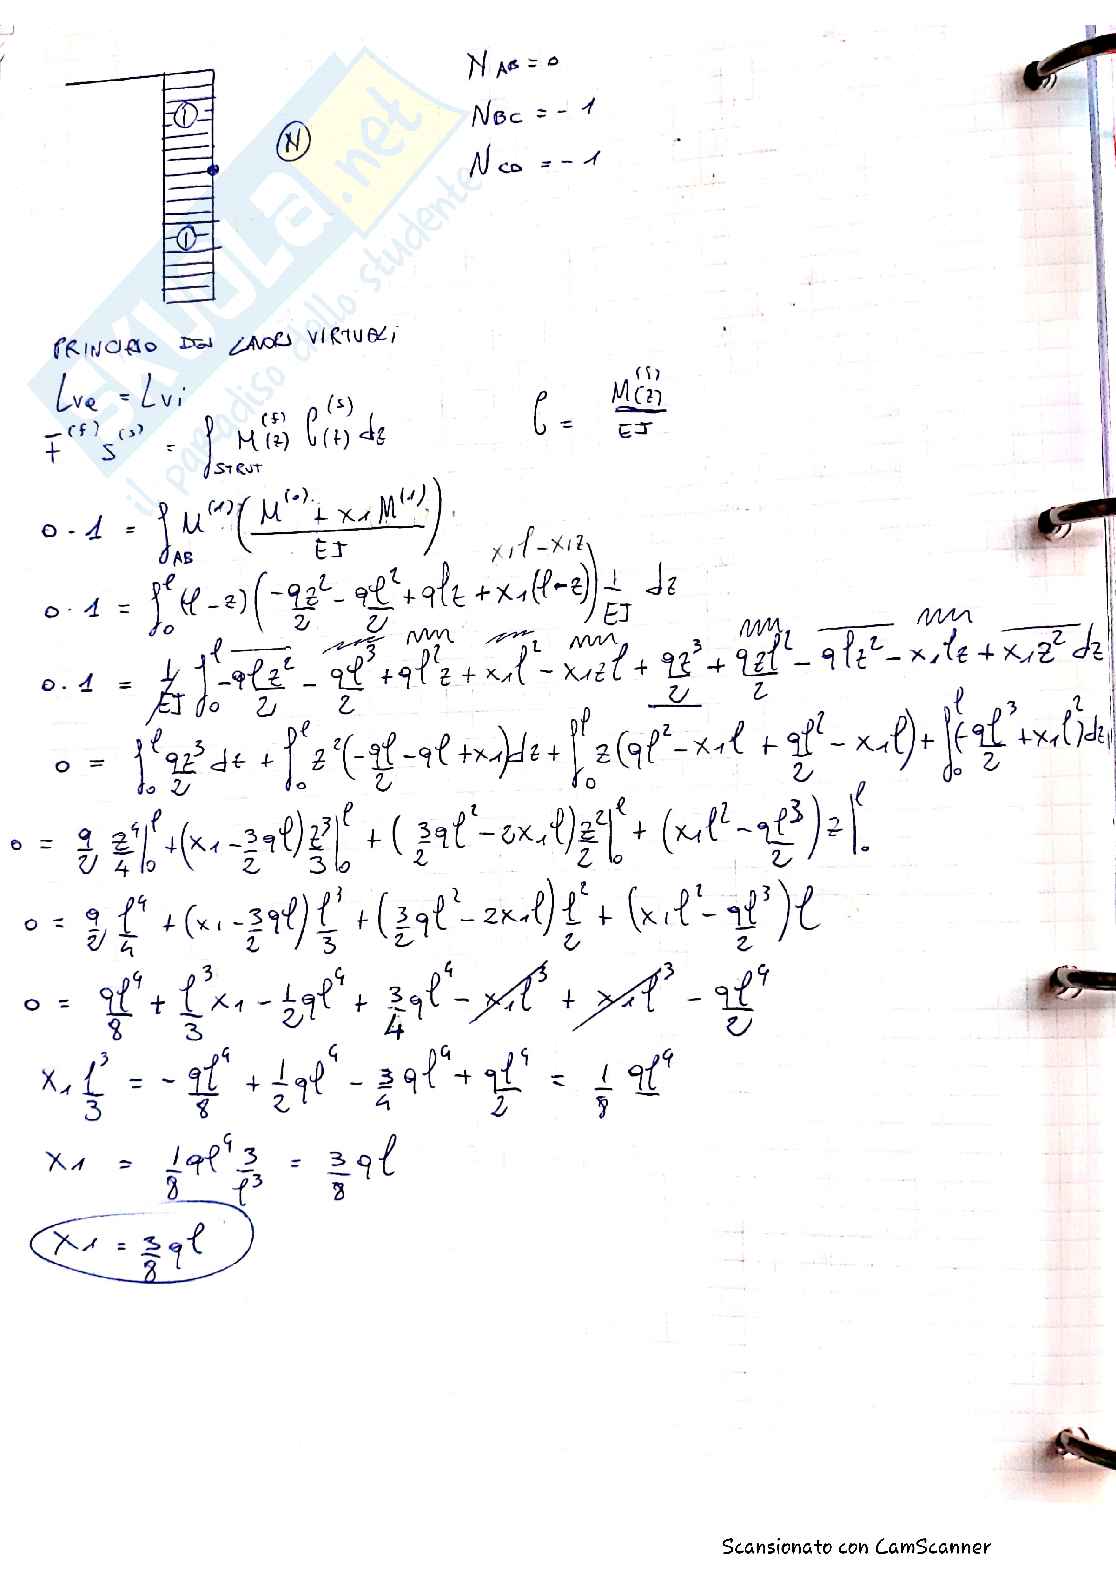 N AB = 0
N BC = - 1
N CD = - 1
1
N
1
SKUOLA.net
il paradiso dello studente
PRINCIPIO DEI LAVORI VIRTUALI
Lve = Lvi
F^(f) s^(s) = ∫_STRUT M^(f)(z) ℓ^(s)(z) dz
ℓ = M^(s)(z) / EI
0 · 1 = ∫_AB M^(1) ( (M^(0) + x1 M^(1)) / EI )
x1ℓ - x1z
0 · 1 = ∫_0^ℓ (ℓ - z) ( -qz²/2 - qℓ²/2 + qℓz + x1(ℓ - z) ) 1/EI dz
0 · 1 = 1/EI ∫_0^ℓ -qℓz²/2 - qℓ³/2 + qℓ²z + x1ℓ² - x1zℓ + qz³/2 + qzℓ²/2 - qℓz² - x1ℓz + x1z² dz
0 = ∫_0^ℓ qz³/2 dz + ∫_0^ℓ z² (-qℓ/2 - qℓ + x1) dz + ∫_0^ℓ z (qℓ² - x1ℓ + qℓ²/2 - x1ℓ) + ∫_0^ℓ (-qℓ³/2 + x1ℓ²) dz
0 = q/2 z⁴/4 |_0^ℓ + (x1 - 3/2 qℓ) z³/3 |_0^ℓ + (3/2 qℓ² - 2x1ℓ) z²/2 |_0^ℓ + (x1ℓ² - qℓ³/2) z |_0^ℓ
0 = q/2 ℓ⁴/4 + (x1 - 3/2 qℓ) ℓ³/3 + (3/2 qℓ² - 2x1ℓ) ℓ²/2 + (x1ℓ² - qℓ³/2) ℓ
0 = qℓ⁴/8 + ℓ³/3 x1 - 1/2 qℓ⁴ + 3/4 qℓ⁴ - x1ℓ³ + x1ℓ³ - qℓ⁴/2
x1 ℓ³/3 = - qℓ⁴/8 + 1/2 qℓ⁴ - 3/4 qℓ⁴ + qℓ⁴/2 = 1/8 qℓ⁴
x1 = 1/8 qℓ⁴ 3/ℓ³ = 3/8 qℓ
x1 = 3/8 qℓ
Scansionato con CamScanner